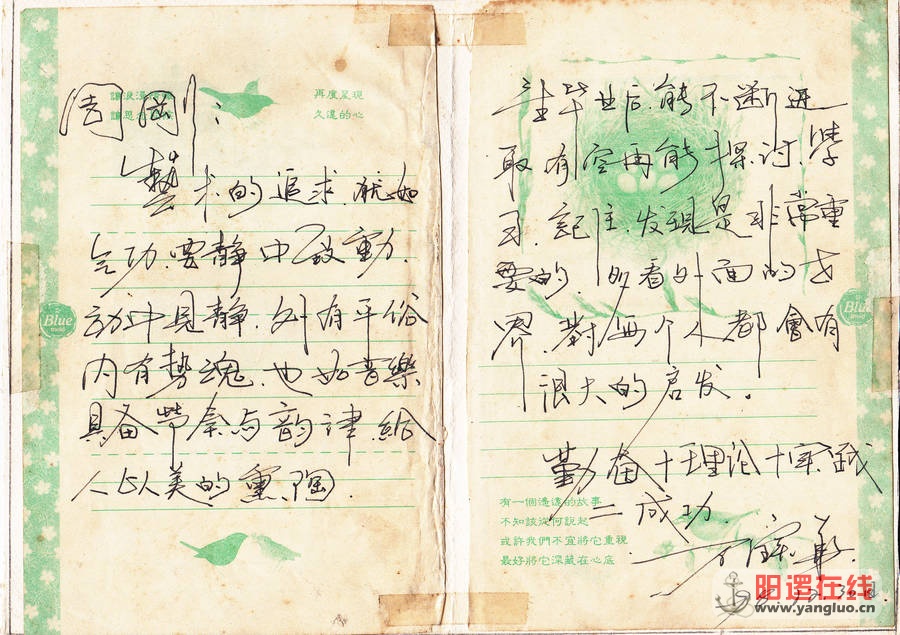 讓浪漫
讓思
再度呈現
久違的心
周刚：
藝术的追求，就如
气功，要静中致動，
动中見静，外有平俗
内有势魂，也如音樂
具备节奏与韵律，給
人以美的熏陶。
Blue
毕业后，能不断进
取，有空再能探讨學
习，記住，发現是非常重
要的，多看外面的世
界，對两个人都會有
很大的启发。
Blue
勤奋+理论+实践
=成功.
有一個遙遠的故事
不知該從何說起
或許我們不宜將它重視
最好將它深藏在心底
阳逻在线
www.yangluo.cn